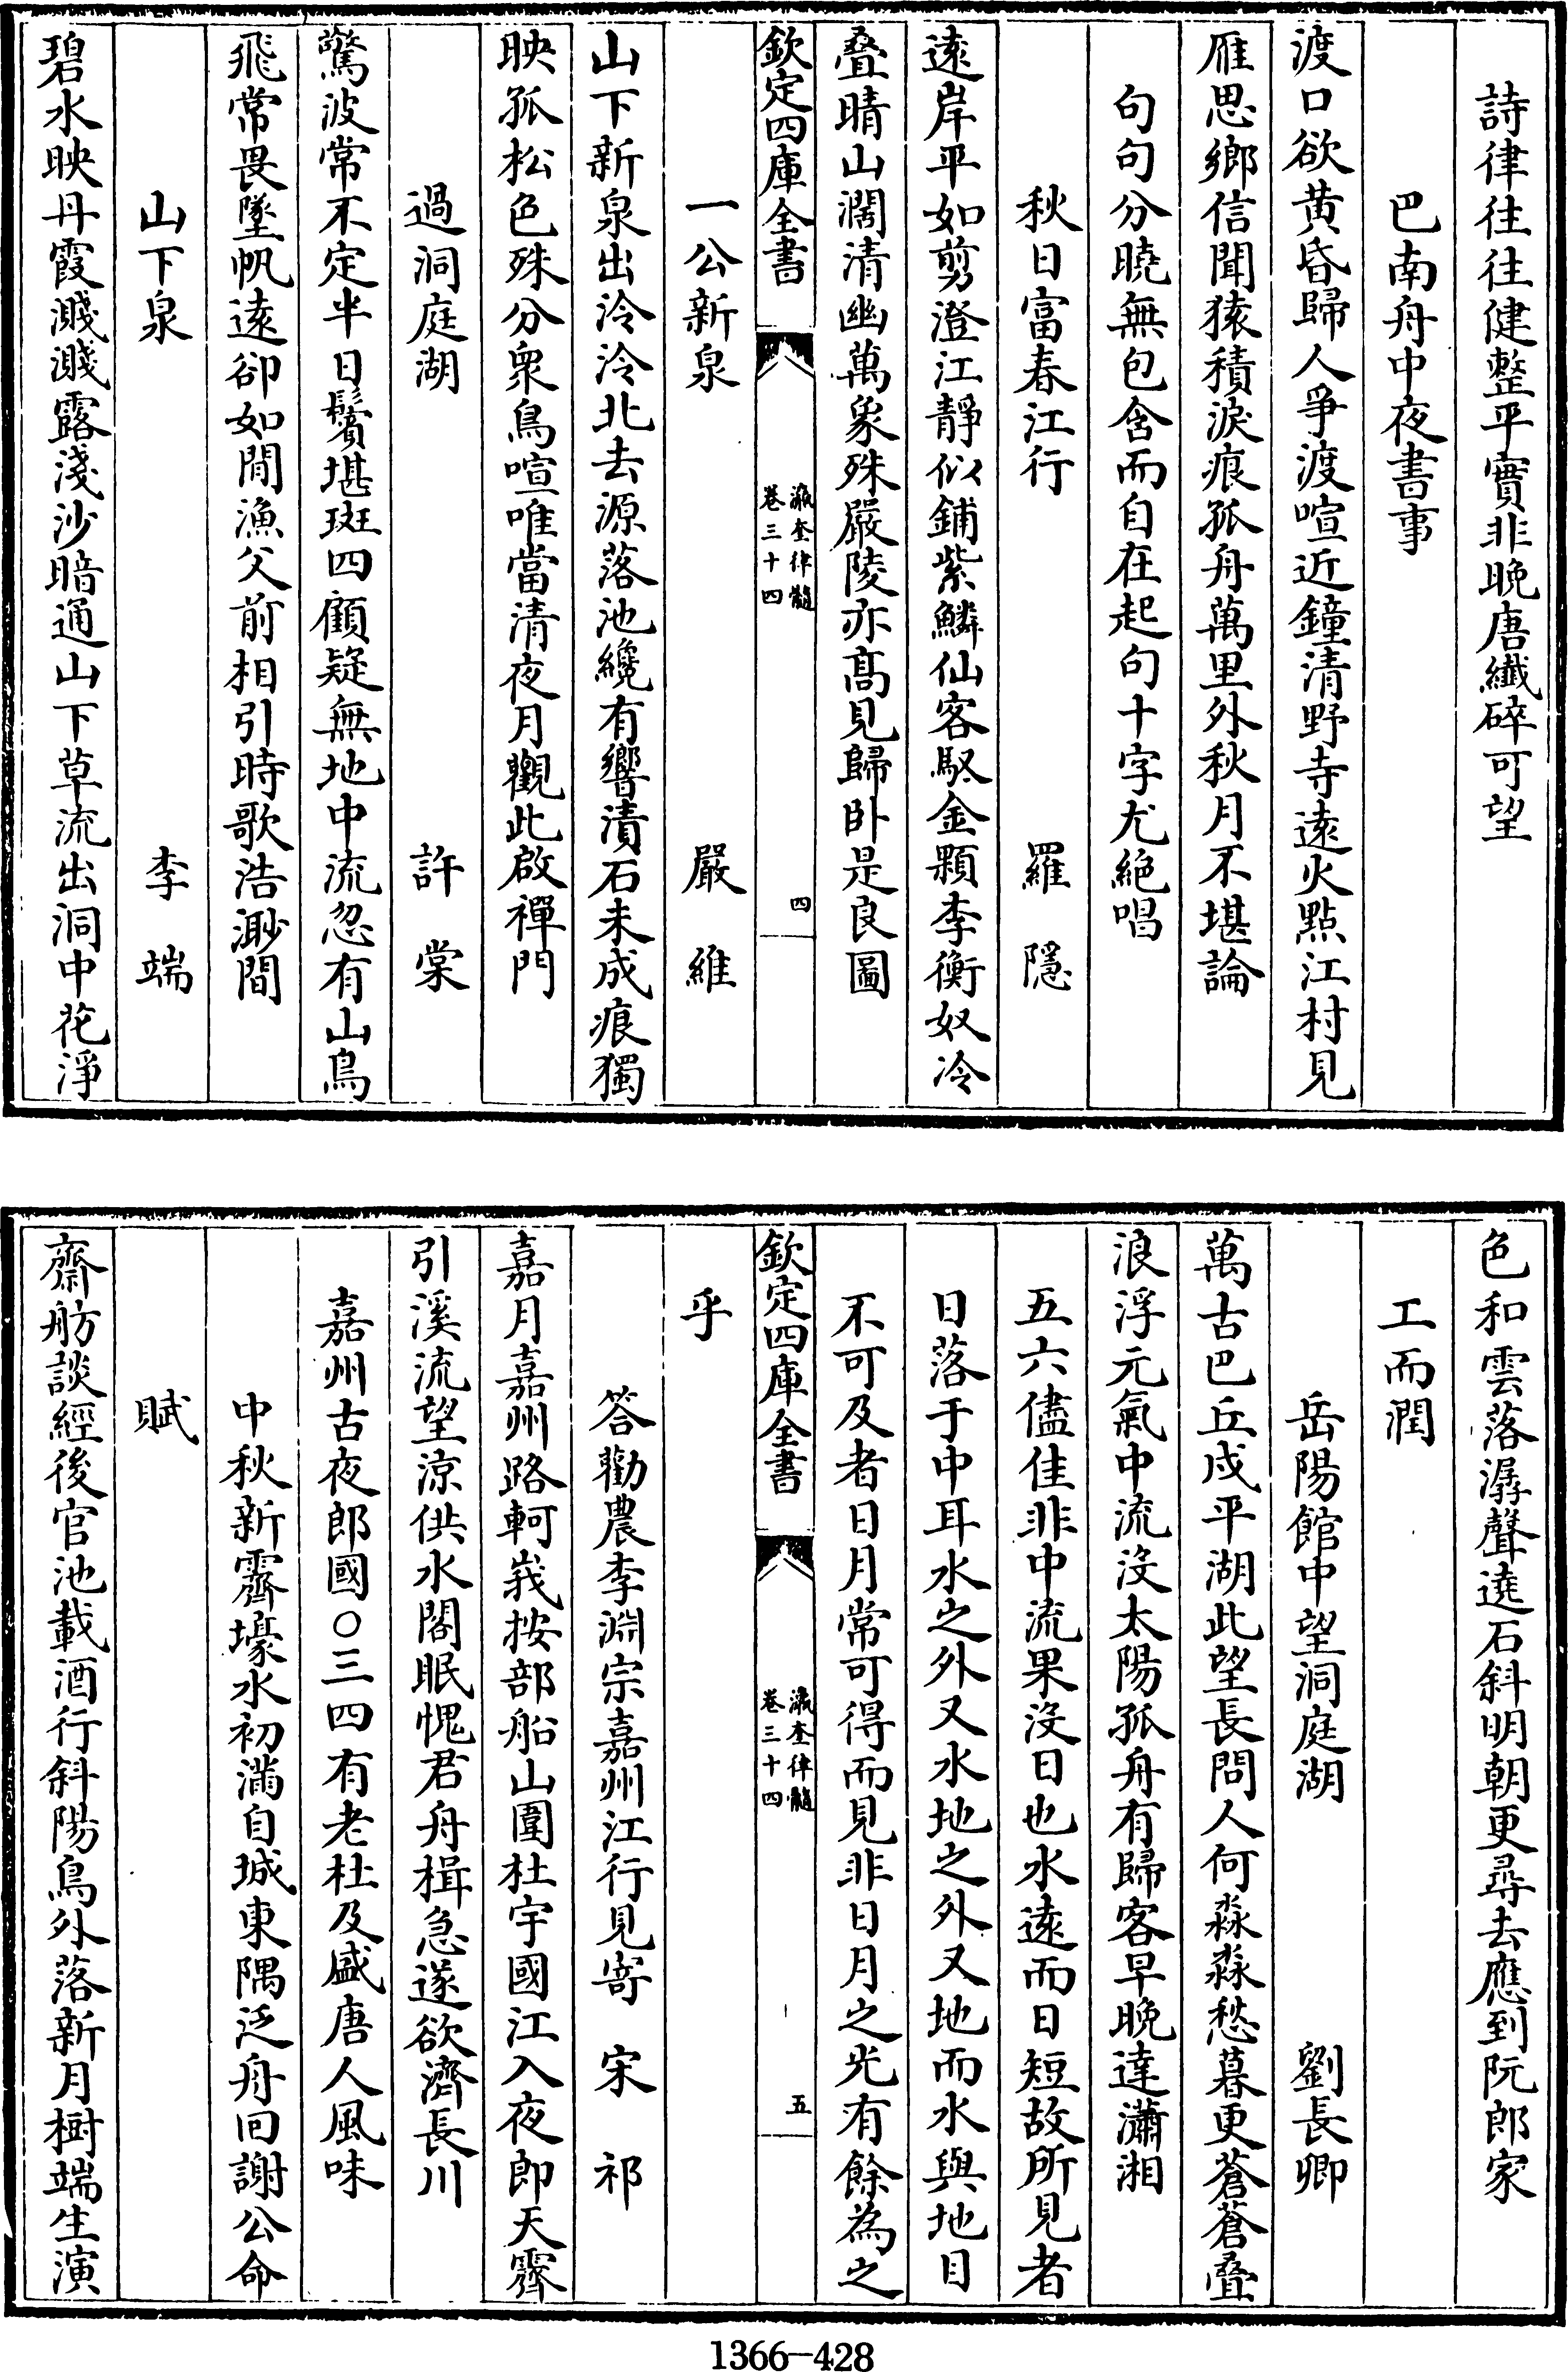 詩律往往健整平實非晚唐纎碎可望
巴南舟中夜書事
渡口欲黄昏歸人爭渡喧近鐘清野寺逺火㸃江村見
雁思鄉信聞猿積淚痕孤舟萬里外秋月不堪論
句句分曉無包含而自在起句十字尤絶唱
秋日富春江行 羅隱
逺岸平如剪澄江靜似鋪紫鱗仙客馭金顆李衡奴冷
疊晴山濶清幽萬象殊嚴陵亦髙見歸卧是良圖
欽定四庫全書 瀛奎律髓 卷三十四 四
一公新泉 嚴維
山下新泉出泠泠北去源落池纔有響漬石未成痕獨
映孤松色殊分衆鳥喧唯當清夜月觀此啟禪門
過洞庭湖 許棠
驚波常不定半日鬢堪斑四顧疑無地中流忽有山鳥
飛常畏墜帆逺卻如閒漁父前相引時歌浩渺間
山下泉 李端
碧水映丹霞濺濺露淺沙暗通山下草流出洞中花淨
色和雲落潺聲遶石斜明朝更尋去應到阮郎家
工而潤
岳陽館中望洞庭湖 劉長卿
萬古巴丘戍平湖此望長問人何淼淼愁暮更蒼蒼疊
浪浮元氣中流沒太陽孤舟有歸客早晚達瀟湘
五六儘佳非中流果沒日也水逺而日短故所見者
日落于中耳水之外又水地之外又地而水與地目
不可及者日月常可得而見非日月之光有餘為之
欽定四庫全書 瀛奎律髓 卷三十四 五
乎
答勸農李淵宗嘉州江行見寄 宋祁
嘉月嘉州路軻峩按部船山圍杜宇國江入夜郎天霽
引溪流望涼供水閣眠愧君舟楫急遂欲濟長川
嘉州古夜郎國○三四有老杜及盛唐人風味
中秋新霽壕水初滿自城東隅泛舟回謝公命
賦
齋舫談經後官池載酒行斜陽鳥外落新月樹端生演
1366-428